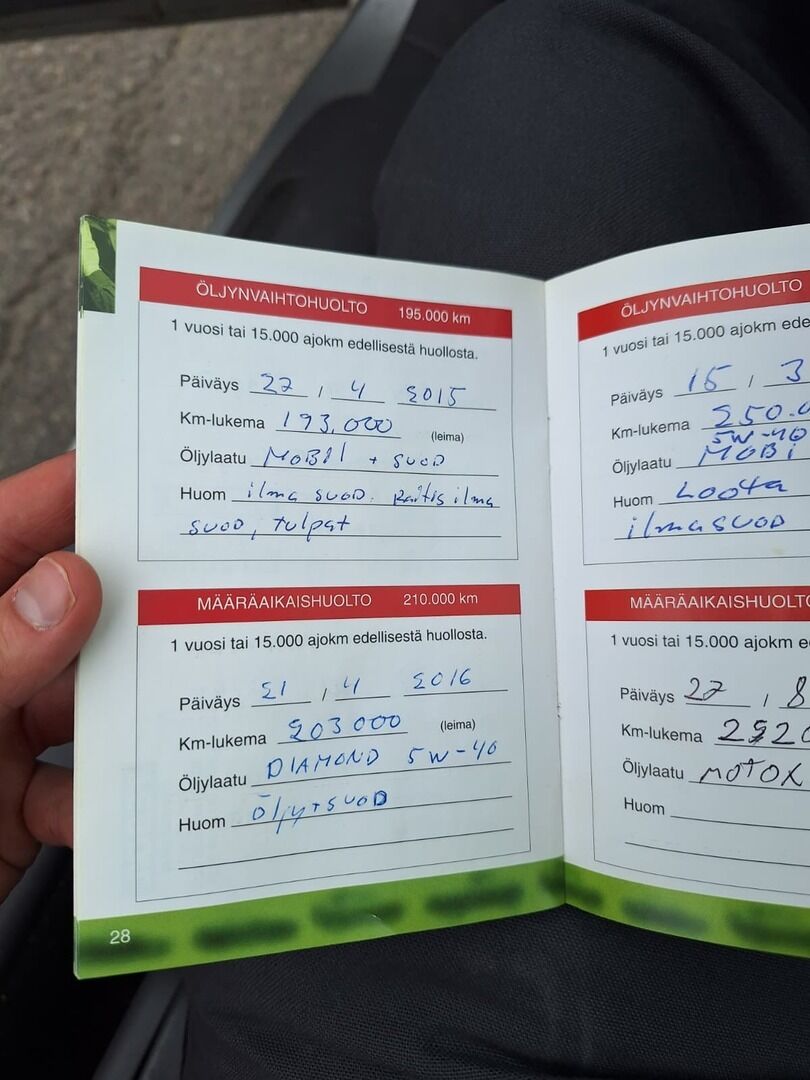 ÖLJYNVAIHTOHUOLTO 195.000 km
1 vuosi tai 15.000 ajokm edellisestä huollosta.
Päiväys 22 / 4 2015
Km-lukema 193,000 (leima)
Öljylaatu MOBIl + SUOD
Huom ilma SUOD. Raitis ilma
SUOD, tulpat
MÄÄRÄAIKAISHUOLTO 210.000 km
1 vuosi tai 15.000 ajokm edellisestä huollosta.
Päiväys 21 / 4 2016
Km-lukema 203000 (leima)
Öljylaatu DIAMOND 5W-40
Huom Öljy+SUOD
28
ÖLJYNVAIHTOHUOLTO
1 vuosi tai 15.000 ajokm
Päiväys 15 / 3
Km-lukema 250.0
5W-40
Öljylaatu MOBI
Huom Loota
ilmaSUOD
MÄÄRÄAIKAISHUOLTO
1 vuosi tai 15.000 ajokm e
Päiväys 27 / 8
Km-lukema
Öljylaatu MOTOX
Huom